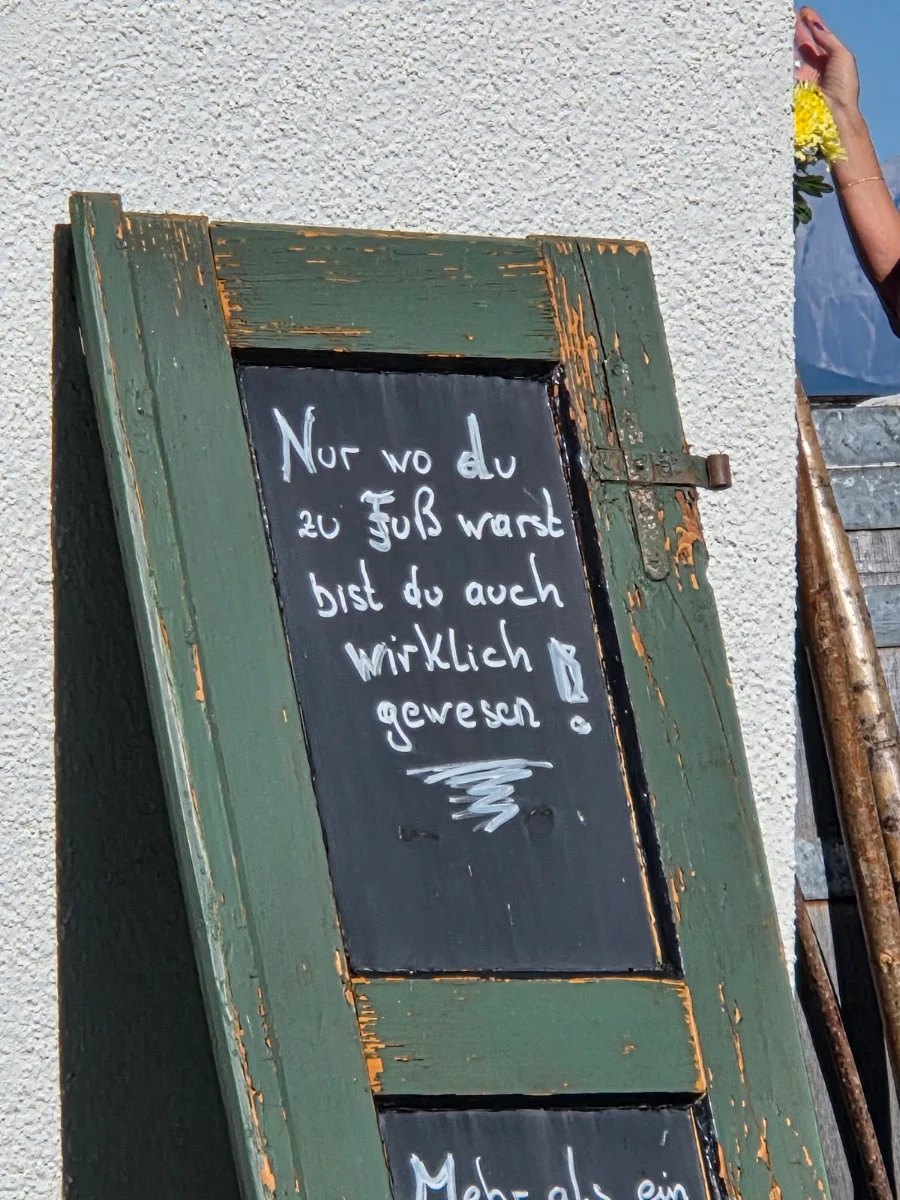 Nur wo du
zu Fuß warst
bist du auch
wirklich
gewesen !
Mehr als ein